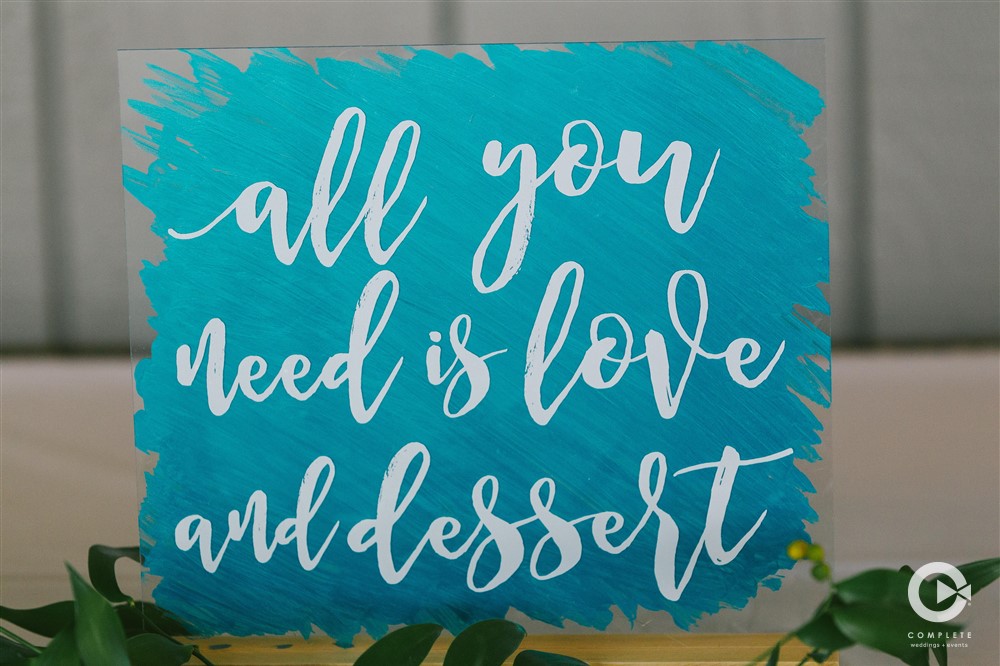 all you
need is love
and dessert
COMPLETE
weddings + events